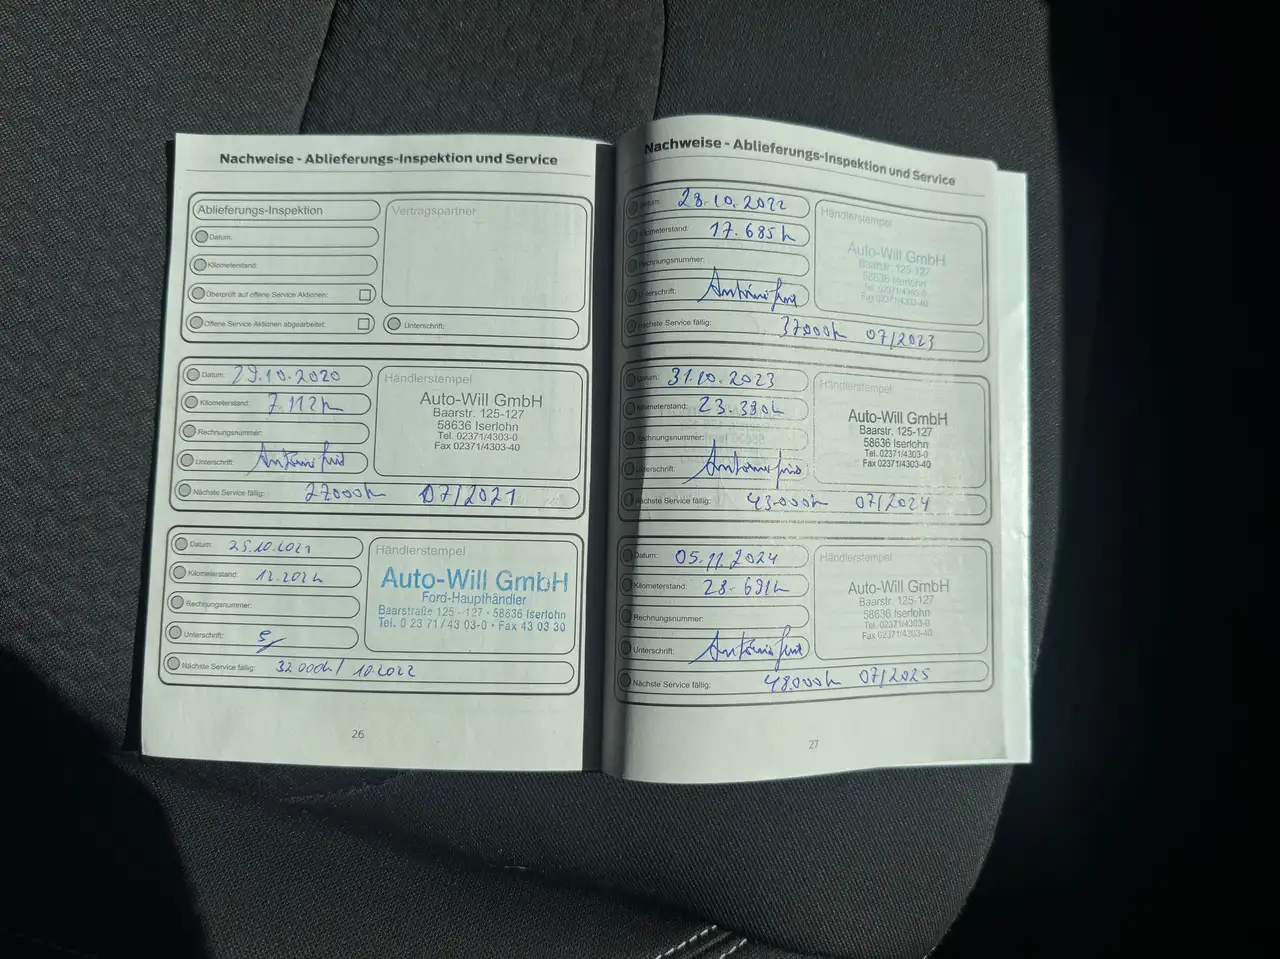 Nachweise - Ablieferungs-Inspektion und Service
Ablieferungs-Inspektion
Datum:
Kilometerstand:
Überprüft auf offene Service Aktionen:
Offene Service Aktionen abgearbeitet:
Vertragspartner
Unterschrift:
Datum: 29.10.2020
Kilometerstand: 7.112k
Rechnungsnummer:
Unterschrift:
Nächste Service fällig: 27000k 07/2021
Händlerstempel
Auto-Will GmbH
Baarstr. 125-127
58636 Iserlohn
Tel. 02371/4303-0
Fax 02371/4303-40
Datum: 25.10.2021
Kilometerstand: 12.202k
Rechnungsnummer:
Unterschrift:
Nächste Service fällig: 32000k/ 10.2022
Händlerstempel
Auto-Will GmbH
Ford-Haupthändler
Baarstraße 125 - 127 · 58636 Iserlohn
Tel. 0 23 71 / 43 03-0 · Fax 43 03 30
26
Nachweise - Ablieferungs-Inspektion und Service
Datum: 28.10.2022
Kilometerstand: 17.685k
Rechnungsnummer:
Unterschrift:
Nächste Service fällig: 37000k 07/2023
Händlerstempel
Auto-Will GmbH
Baarstr. 125-127
58636 Iserlohn
Tel. 02371/4303-0
Fax 02371/4303-40
Datum: 31.10.2023
Kilometerstand: 23.330k
Rechnungsnummer:
Unterschrift:
Nächste Service fällig: 43.000k 07/2024
Händlerstempel
Auto-Will GmbH
Baarstr. 125-127
58636 Iserlohn
Tel. 02371/4303-0
Fax 02371/4303-40
Datum: 05.11.2024
Kilometerstand: 28.691k
Rechnungsnummer:
Unterschrift:
Nächste Service fällig: 48.000k 07/2025
Händlerstempel
Auto-Will GmbH
Baarstr. 125-127
58636 Iserlohn
Tel. 02371/4303-0
Fax 02371/4303-40
27